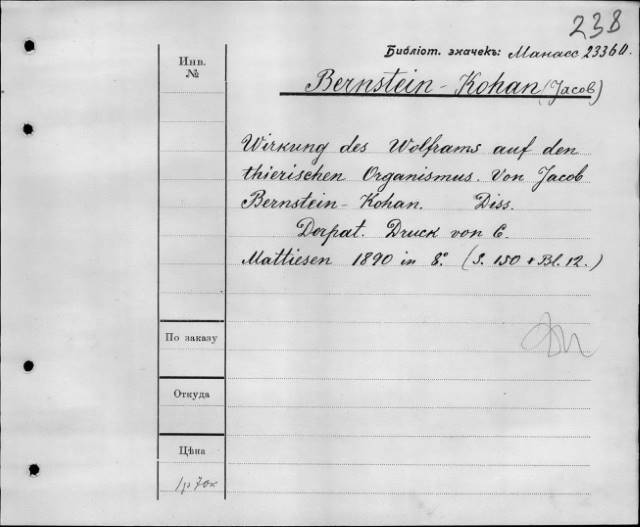 238
Библіот. значекъ: Манасс 23360.
Инв.
№
Bernstein-Kohan (Jacob)
Wirkung des Wolframs auf den
thierischen Organismus. Von Jacob
Bernstein-Kohan. Diss.
Dorpat. Druck von C.
Mattiesen 1890 in 8.º (S. 150 + Bl. 12.)
По заказу
Откуда
Цѣна
1р 70к